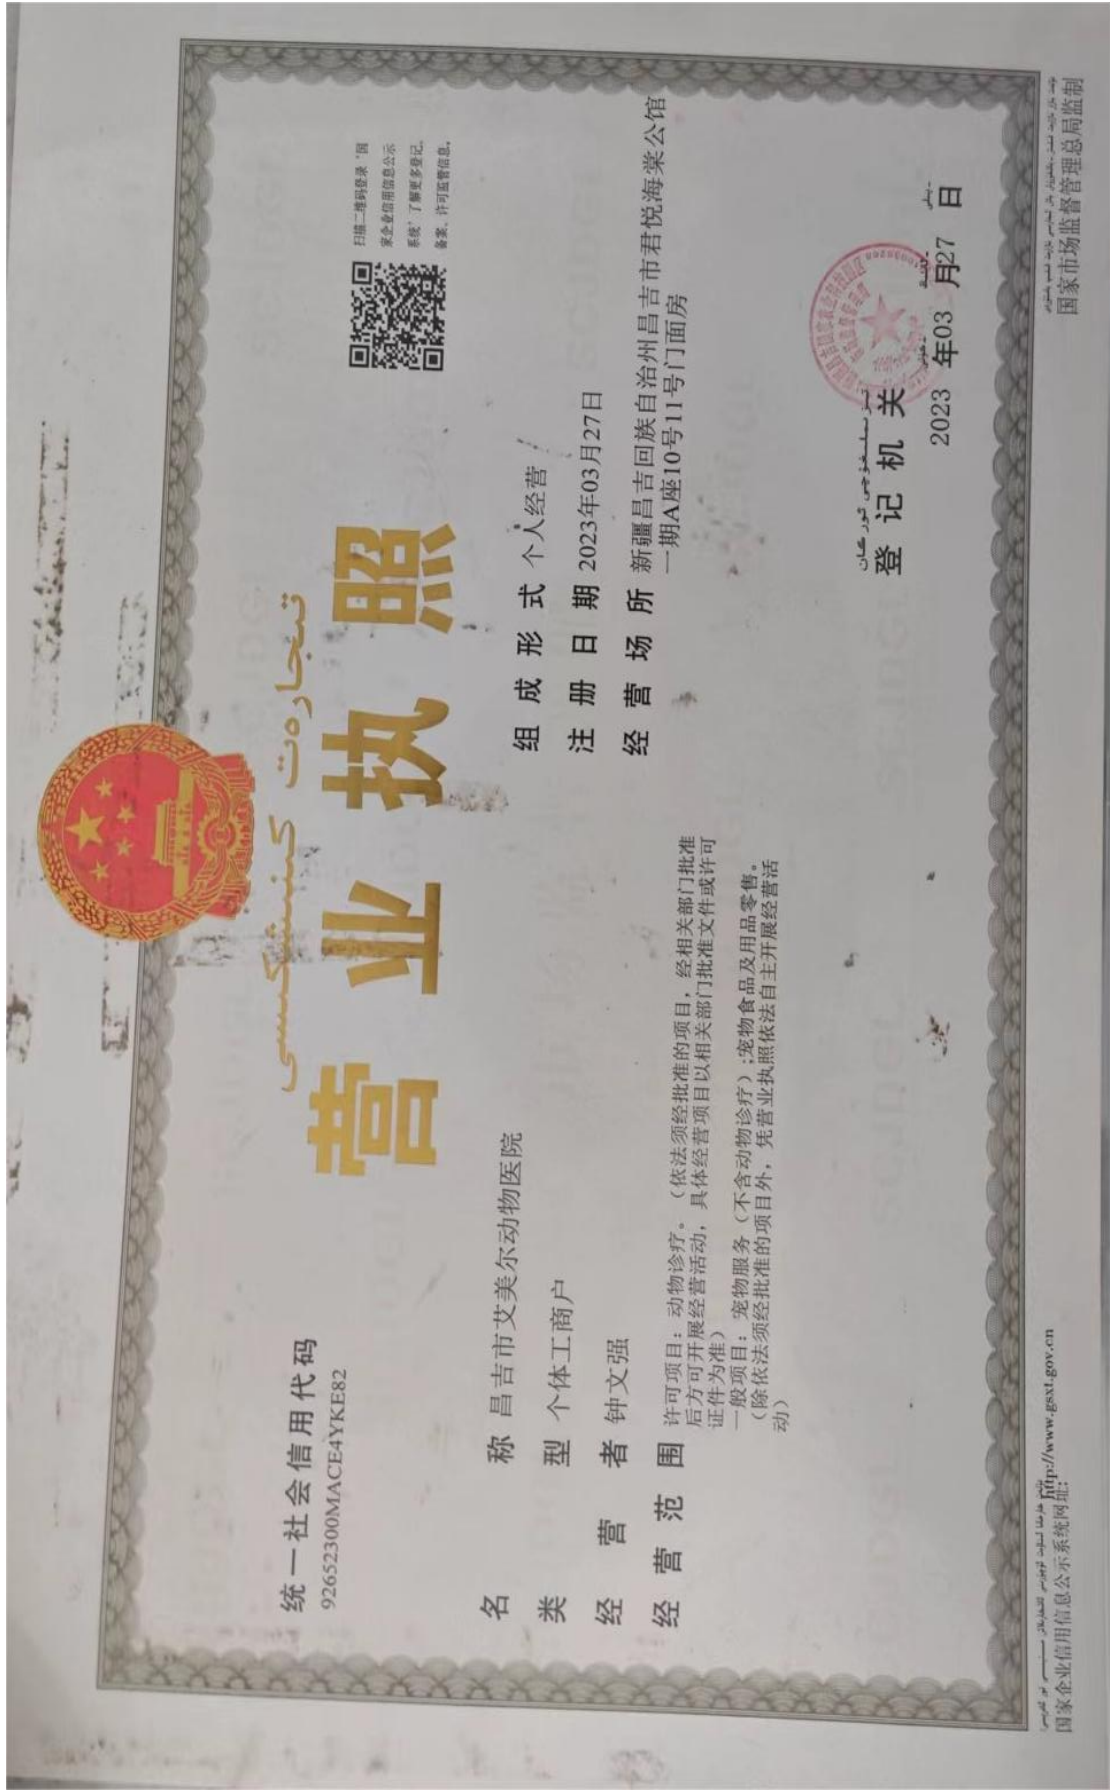 统一社会信用代码
92652300MACE4YKE82
تىجارەت كىنىشكىسى
营业执照
扫描二维码登录‘国
家企业信用信息公示
系统’了解更多登记、
备案、许可监管信息。
名称 昌吉市艾美尔动物医院
类型 个体工商户
经营者 钟文强
经营范围 许可项目：动物诊疗。（依法须经批准的项目，经相关部门批准
后方可开展经营活动，具体经营项目以相关部门批准文件或许可
证件为准）
一般项目：宠物服务（不含动物诊疗）;宠物食品及用品零售。
（除依法须经批准的项目外，凭营业执照依法自主开展经营活
动）
组成形式 个人经营
注册日期 2023年03月27日
经营场所 新疆昌吉回族自治州昌吉市君悦海棠公馆
一期A座10号11号门面房
登记机关
2023 年03 月27 日
国家企业信用信息公示系统网址：
http://www.gsxt.gov.cn
国家市场监督管理总局监制